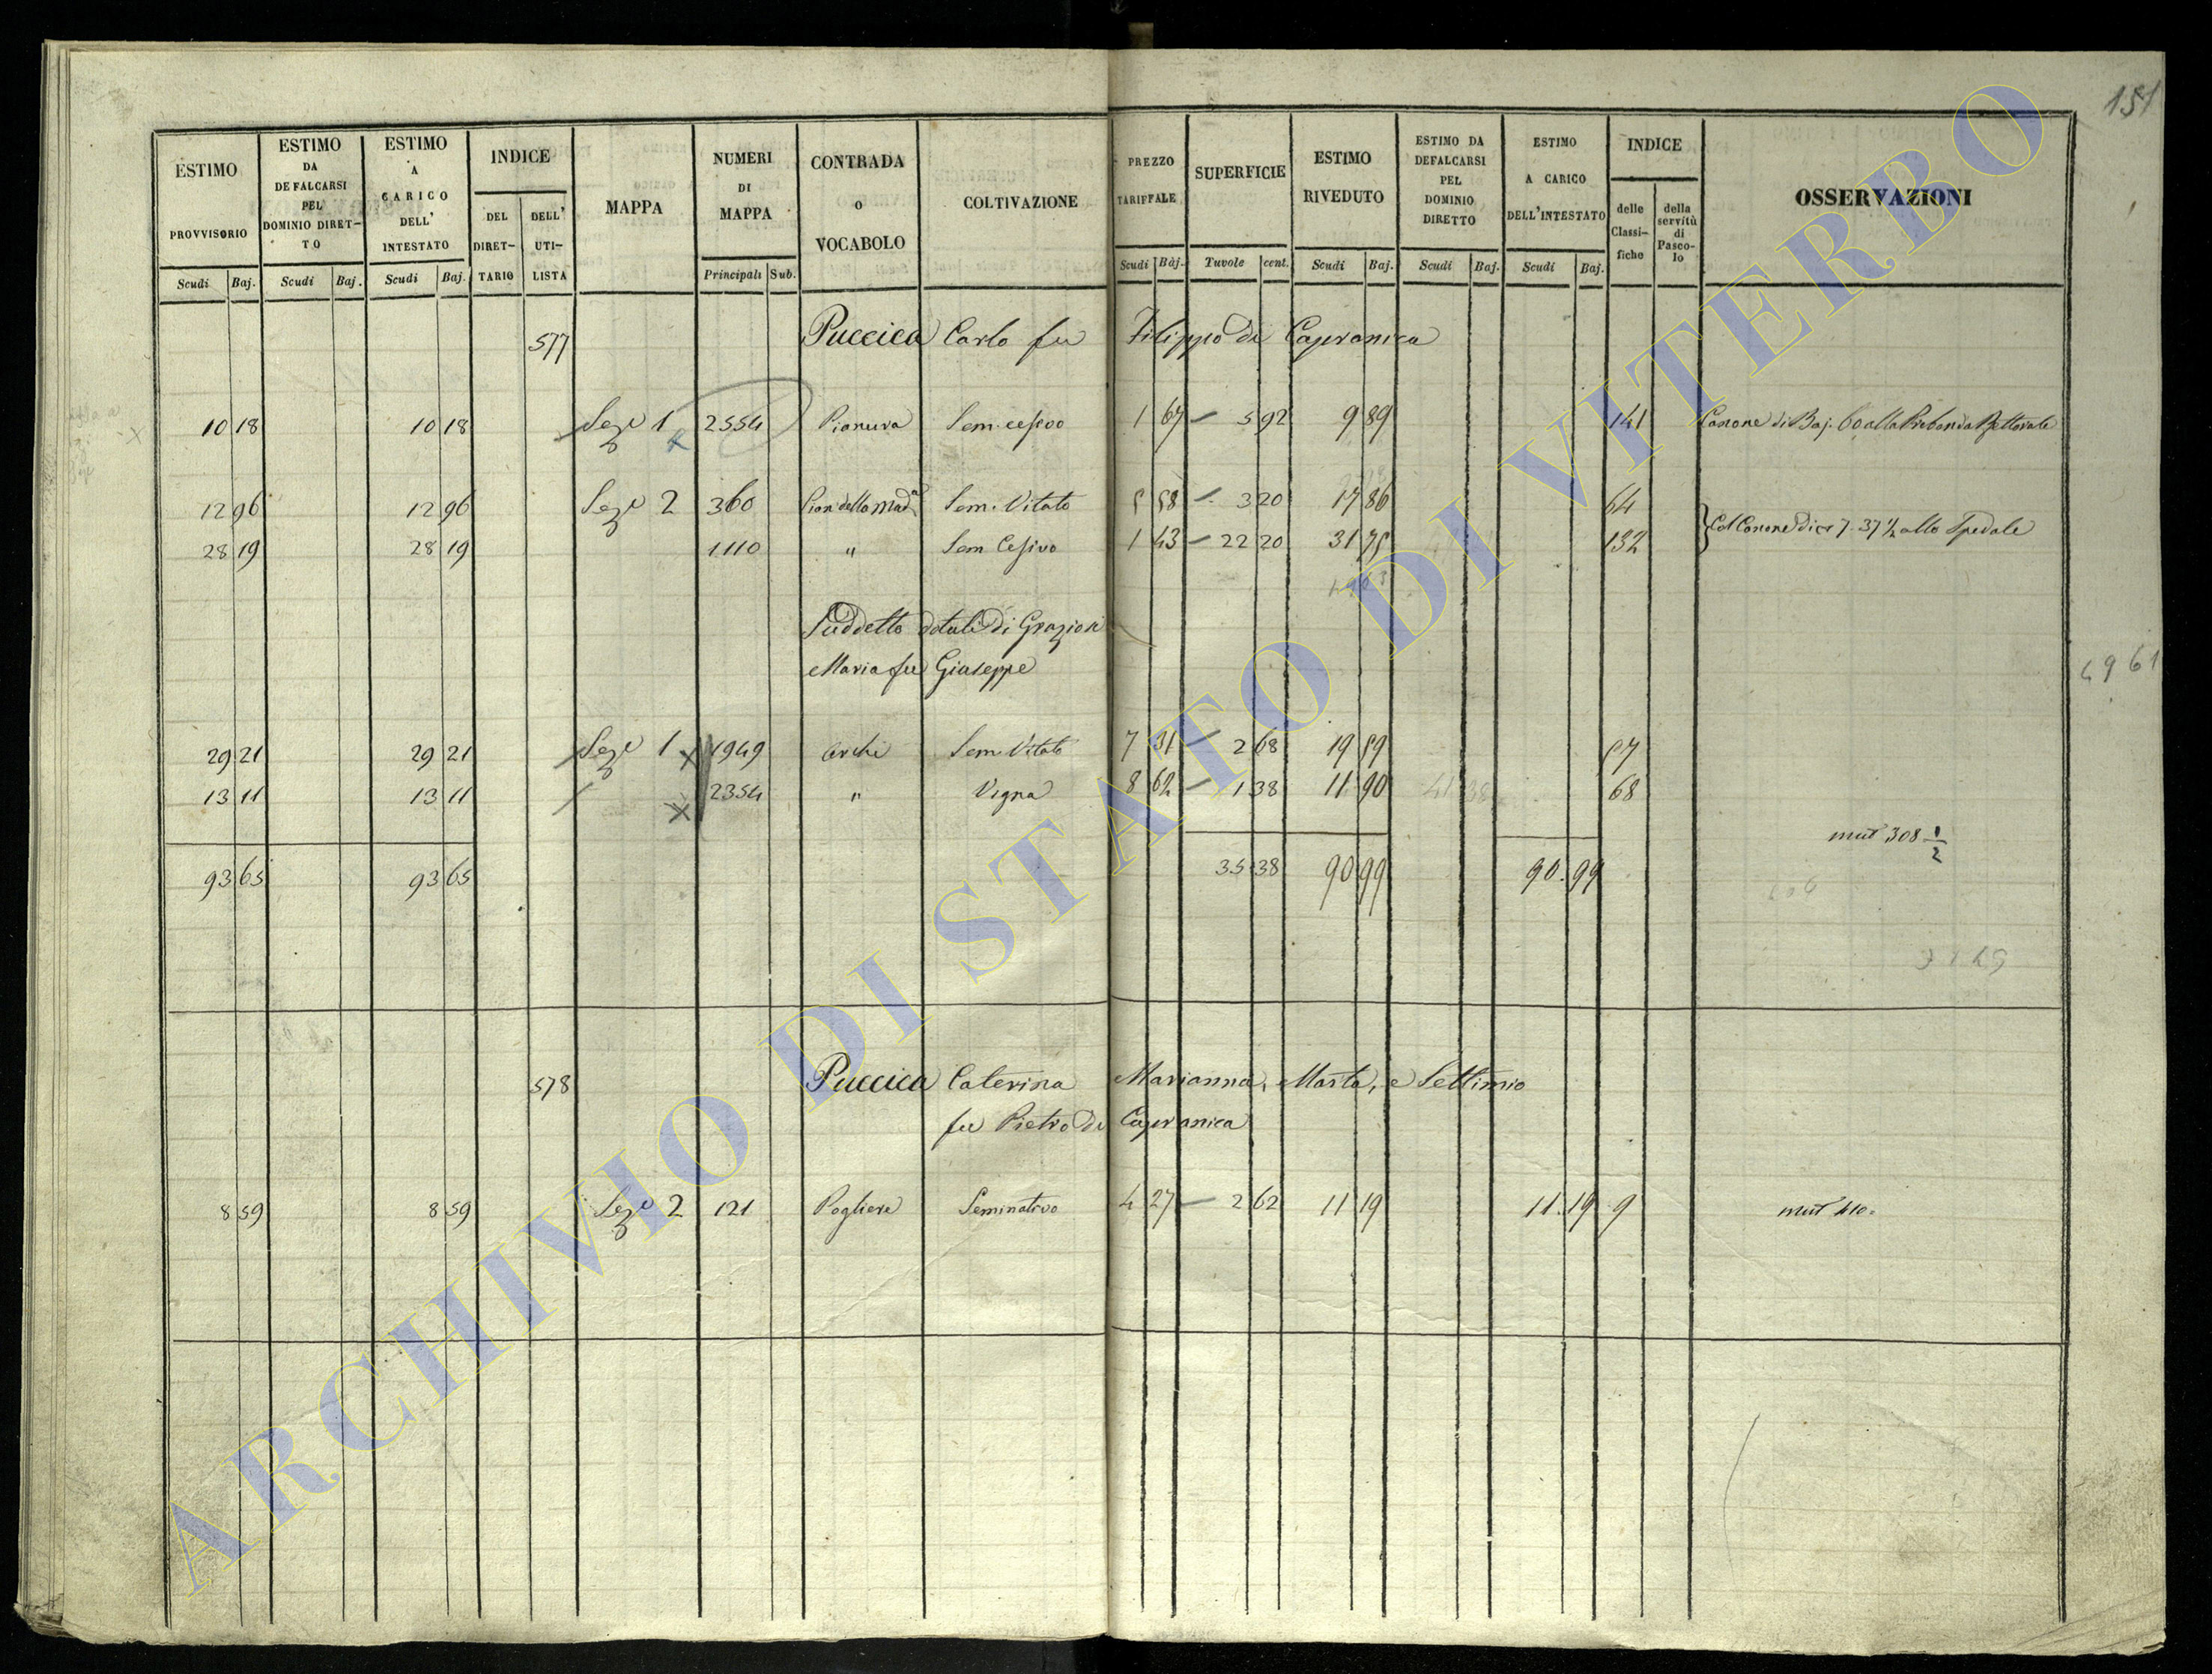 151
ESTIMO PROVVISORIO
ESTIMO DA DEFALCARSI PEL DOMINIO DIRETTO
ESTIMO A CARICO DELL' INTESTATO
INDICE
DEL DIRETTARIO
DELL' UTILISTA
MAPPA
NUMERI DI MAPPA
CONTRADA o VOCABOLO
COLTIVAZIONE
PREZZO TARIFFALE
SUPERFICIE
ESTIMO RIVEDUTO
ESTIMO DA DEFALCARSI PEL DOMINIO DIRETTO
ESTIMO A CARICO DELL'INTESTATO
INDICE
delle Classifiche
della servitù di Pascolo
OSSERVAZIONI
Scudi Baj. Scudi Baj. Scudi Baj. Principali Sub. Scudi Baj. Tavole cent. Scudi Baj. Scudi Baj. Scudi Baj.
577 Puccica Carlo fu Filippo di Capranica
10 18 10 18 Sez.e 1 2554 Pianura Sem. cesivo 1 67 5 92 9 89 141 Canone di Baj. 60 alla Prebenda Rettorale
12 96 12 96 Sez.e 2 360 Pian della Mad.a Sem. Vitato 5 58 3 20 17 86 64
28 19 28 19 1110 " Sem Cesivo 1 43 22 20 31 75 132 Col Canone di 7. 37 ½ allo Spedale
Suddetto dotali di Graziosi
Maria fu Giuseppe
4961
29 21 29 21 Sez.e 1 1949 Archi Sem. Vitato 7 31 2 68 19 59 57
13 11 13 11 2354 " Vigna 8 62 1 38 11 90 68
mut 308 1/2
93 65 93 65 35 38 90 99 90.99
578 Puccica Caterina Marianna, Marta, e Settimio
fu Pietro di Capranica
8 59 8 59 Sez.e 2 121 Pogliere Seminativo 4 27 2 62 11 19 11.19 9 mut 410
ARCHIVIO DI STATO DI VITERBO